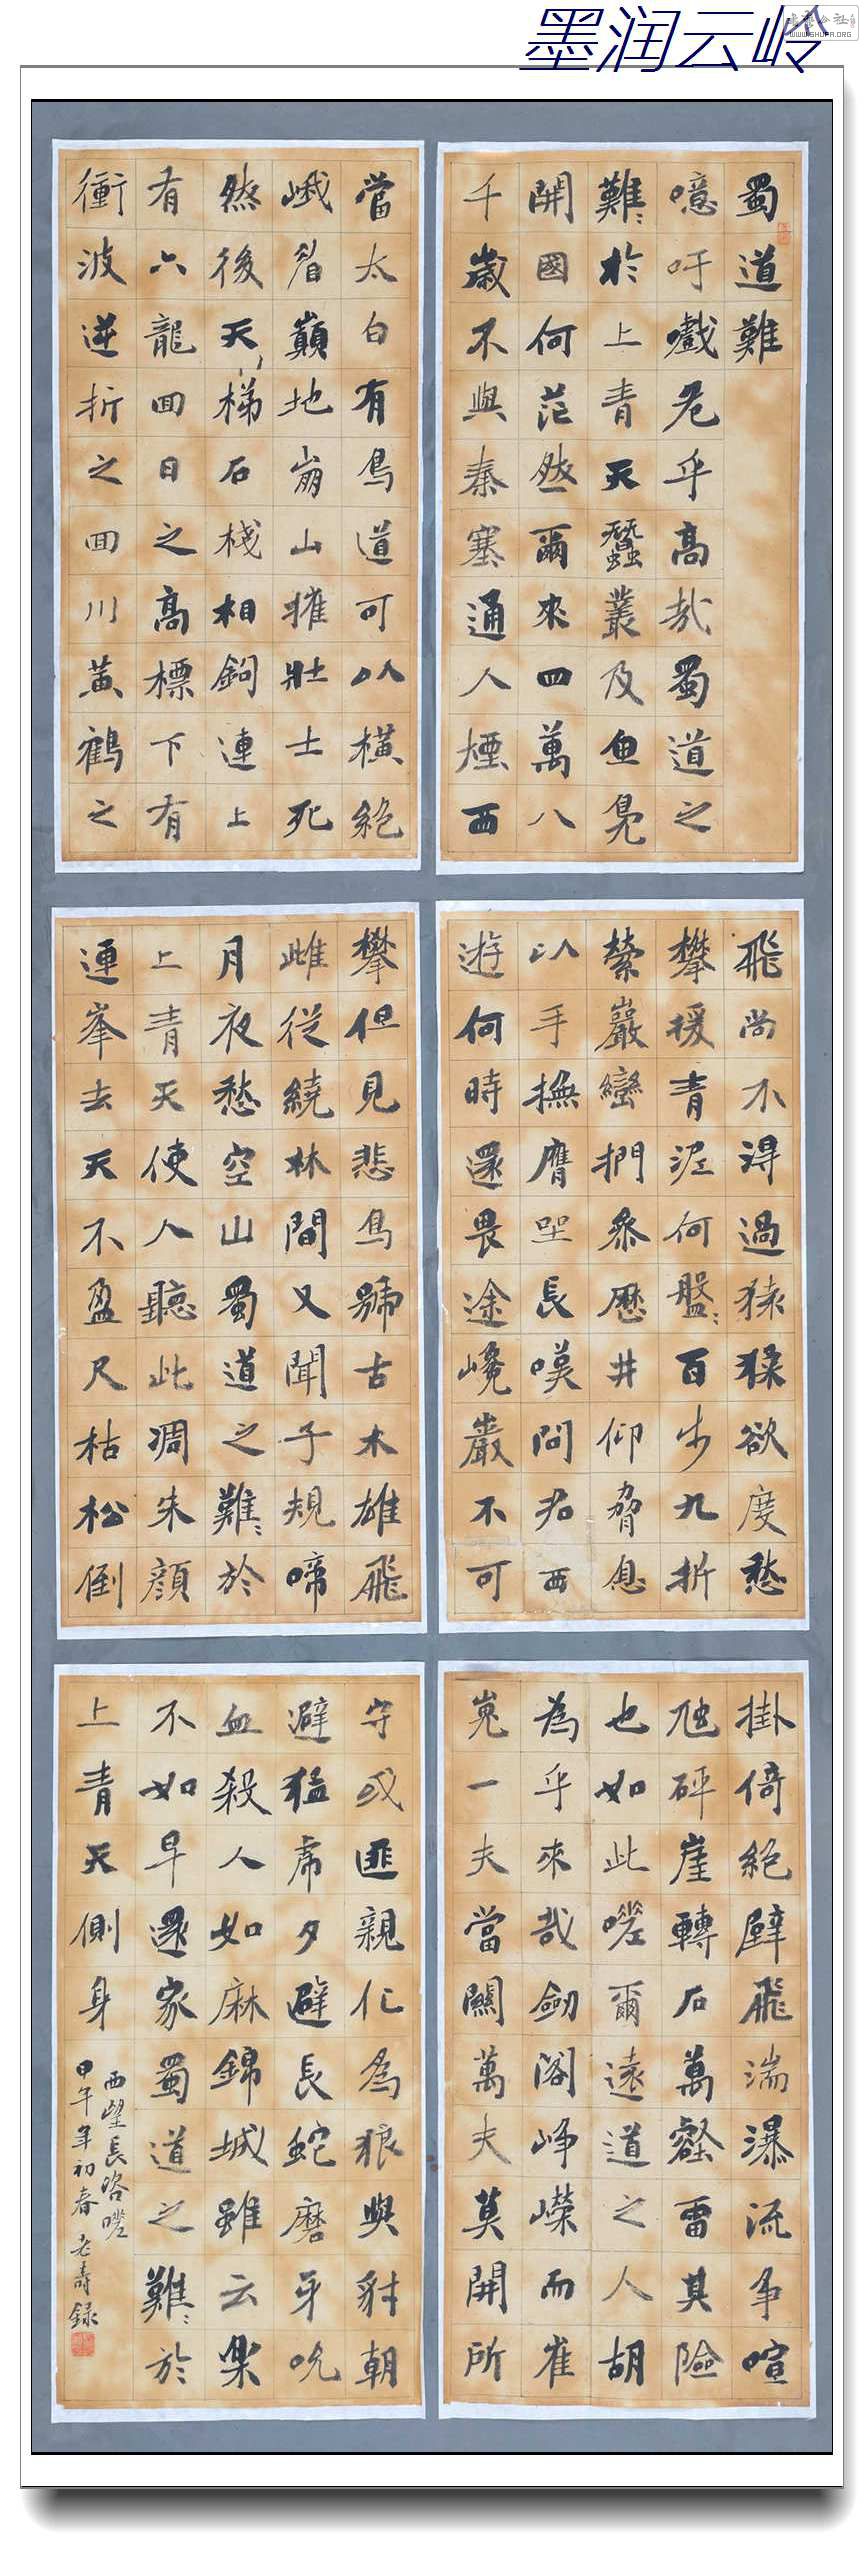 墨润云岭
书法公社
WWW.SHUFA.ORG
蜀道難
噫吁戲危乎高哉蜀道之
難〻於上青天蠶叢及魚鳧
開國何茫然爾來四萬八
千歲不與秦塞通人煙西
當太白有鳥道可以橫絕
峨眉巔地崩山摧壯士死
然後天梯石棧相鉤連上
有六龍回日之高標下有
衝波逆折之回川黃鶴之
飛尚不得過猿猱欲度愁
攀援青泥何盤〻百步九折
縈巖巒捫參歷井仰脅息
以手撫膺坐長嘆問君西
遊何時還畏途巉巖不可
攀但見悲鳥號古木雄飛
雌從繞林間又聞子規啼
月夜愁空山蜀道之難〻於
上青天使人聽此凋朱顏
連峯去天不盈尺枯松倒
掛倚絕壁飛湍瀑流爭喧
虺砰崖轉石萬壑雷其險
也如此嗟爾遠道之人胡
為乎來哉劍閣崢嶸而崔
嵬一夫當關萬夫莫開所
守或匪親化為狼與豺朝
避猛虎夕避長蛇磨牙吮
血殺人如麻錦城雖云樂
不如早還家蜀道之難〻於
上青天側身
西望長咨嗟
甲午年初春 老壽錄